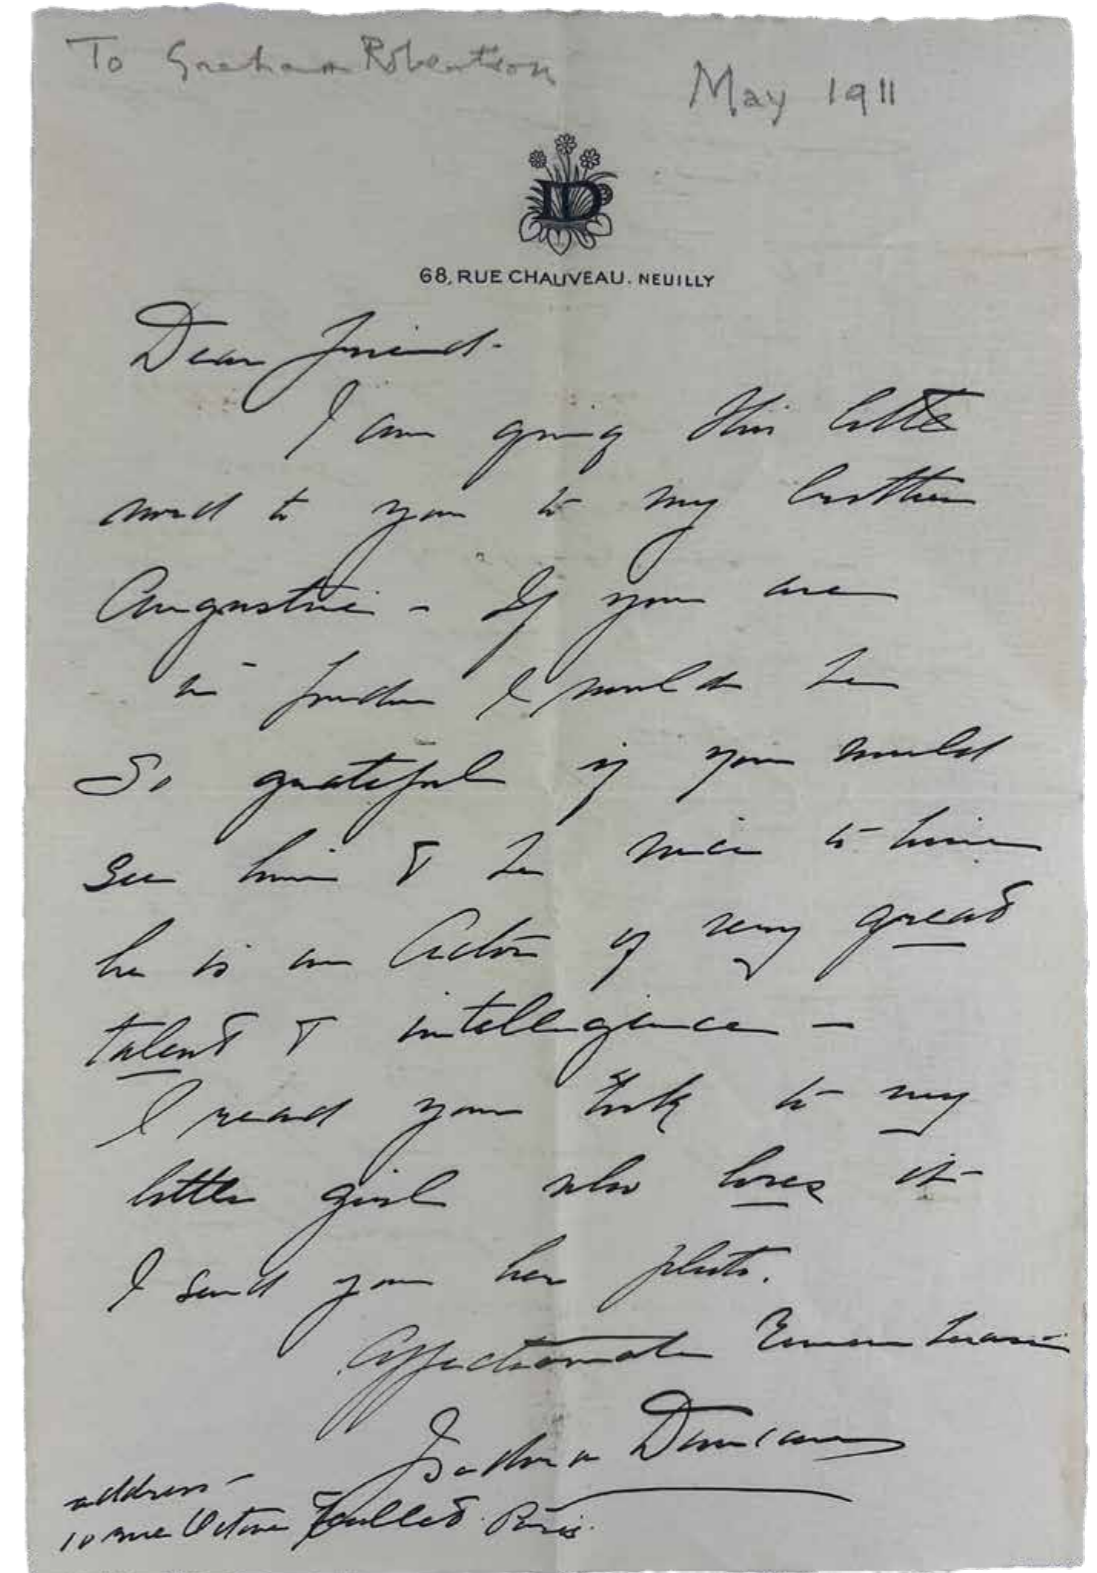 To Graham Robertson
May 1911
ID
68, RUE CHAUVEAU. NEUILLY
Dear Friend -
I am giving this little
word to you to my brother
Augustin - If you are
in London I would be
So grateful if you would
see him & be nice to him
he is an Actor of very great
talent & intelligence -
I read your book to my
little girl who loves it -
I send you her photo.
Affectionate Remembrances
Isadora Duncan
address -
10 rue Octave Feuillet. Paris.